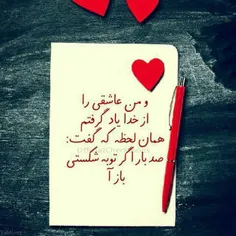 و من عاشقی را
از خدا یاد گرفتم
همان لحظه که گفت:
صد بار اگر توبه شکستی
باز آ